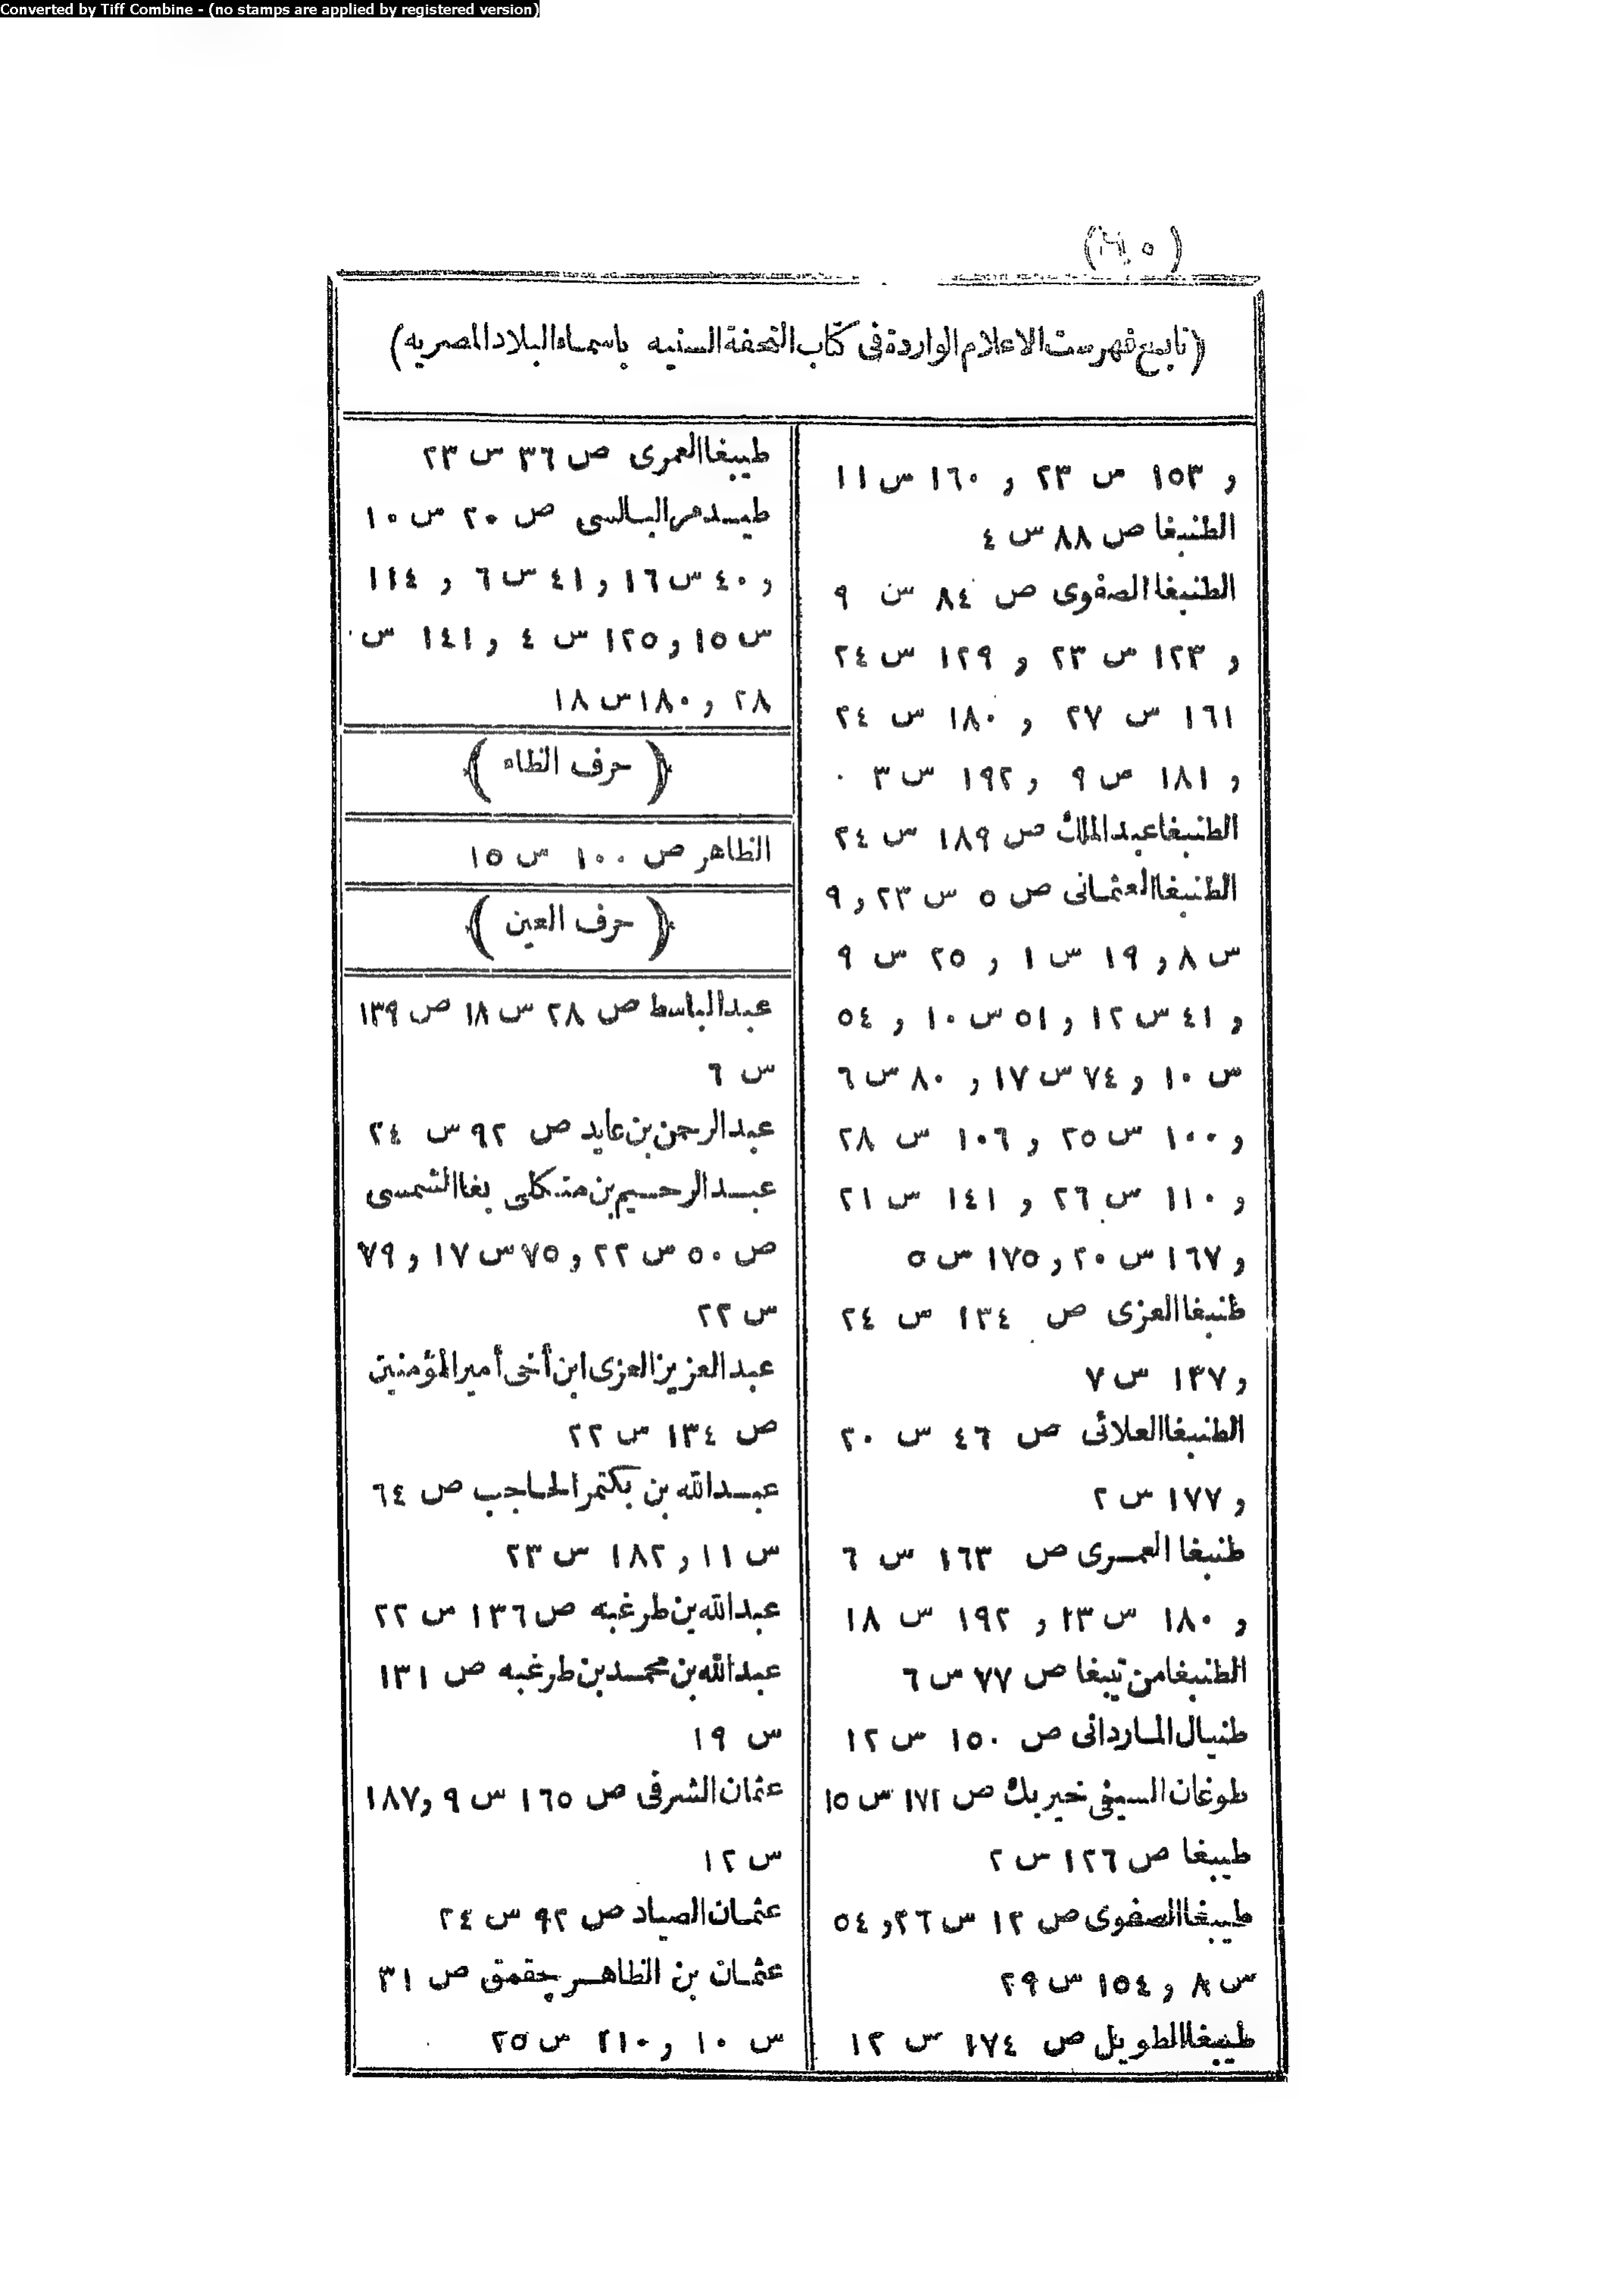 Converted by Tiff Combine - (no stamps are applied by registered version)
(تابع فهرست الاعلام الواردة فى كتاب التحفة السنيه باسماء البلاد المصريه)
و ١٥٣ س ٢٣ و ١٦٠ س ١١
الطنبغا ص ٨٨ س ٤
الطنبغا الصفوى ص ٨٤ س ٩
و ١٢٣ س ٢٣ و ١٢٩ س ٢٤
١٦١ س ٢٧ و ١٨٠ س ٢٤
و ١٨١ ص ٩ و ١٩٢ س ٣
الطنبغا عبد الملك ص ١٨٩ س ٢٤
الطنبغا العثمانى ص ٥ س ٢٣ و ٩
س ٨ و ١٩ س ١ و ٢٥ س ٩
و ٤١ س ١٢ و ٥١ س ١٠ و ٥٤
س ١٠ و ٧٤ س ١٧ و ٨٠ س ٦
و ١٠٠ س ٢٥ و ١٠٦ س ٢٨
و ١١٠ س ٢٦ و ١٤١ س ٢١
و ١٦٧ س ٢٠ و ١٧٥ س ٥
طنبغا العزى ص ١٣٤ س ٢٤
و ١٣٧ س ٧
الطنبغا العلائى ص ٤٦ س ٢٠
و ١٧٧ س ٢
طنبغا العمرى ص ١٦٣ س ٦
و ١٨٠ س ٢٣ و ١٩٢ س ١٨
الطنبغا من تيبغا ص ٧٧ س ٦
طنيال الماردانى ص ١٥٠ س ١٢
طوغان السيفى خير بك ص ١٧٢ س ١٥
طيبغا ص ١٢٦ س ٢
طيبغا الصفوى ص ١٢ س ٢٦ و ٥٤
س ٨ و ١٥٤ س ٢٩
طيبغا الطويل ص ١٧٤ س ١٢
طيبغا العمرى ص ٣٦ س ٢٣
طيدمر البالسى ص ٢٠ س ١٠
و ٤٠ س ١٦ و ٤١ س ٦ و ١١٤
س ١٥ و ١٢٥ س ٤ و ١٤١ س
٢٨ و ١٨٠ س ١٨
﴿ حرف الظاء ﴾
الظاهر ص ١٠٠ س ١٥
﴿ حرف العين ﴾
عبد الباسط ص ٢٨ س ١٨ ص ١٣٩
س ٦
عبد الرحمن بن عايد ص ٩٢ س ٢٤
عبد الرحيم بن منكلى بغا الشمسى
ص ٥٠ س ٢٢ و ٧٥ س ١٧ و ٧٩
س ٢٢
عبد العزيز العزى ابن أخى أمير المؤمنين
ص ١٣٤ س ٢٢
عبد الله بن بكتمر الحاجب ص ٦٤
س ١١ و ١٨٢ س ٢٣
عبد الله بن طرغبه ص ١٣٦ س ٢٢
عبد الله بن محمد بن طرغبه ص ١٣١
س ١٩
عثمان الشرفى ص ١٦٥ س ٩ و ١٨٧
س ١٢
عثمان الصياد ص ٩٢ س ٢٤
عثمان بن الظاهر جقمق ص ٣١
س ١٠ و ٢١٠ س ٢٥